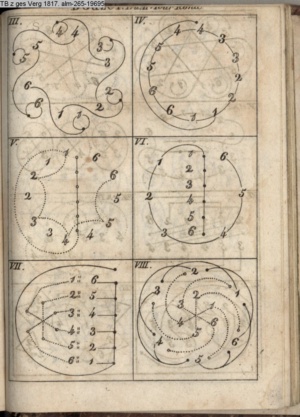 TB z ges Verg 1817. alm-265-19695
III.
4 4
5 3
5 3
6 2
6 1 1 2
IV.
4 4
5 3
5 3
6 2
6 1 1 2
V.
1 1 6
2
2 5
3 5
3 4 4
VI.
1 1 6
2
3
2 4 5
5
3 6 4
VII.
1 6
2 5
3 4
4 3
5 2
6 1
VIII.
2
3 2 1
3 1
4 6
4 5 6
5